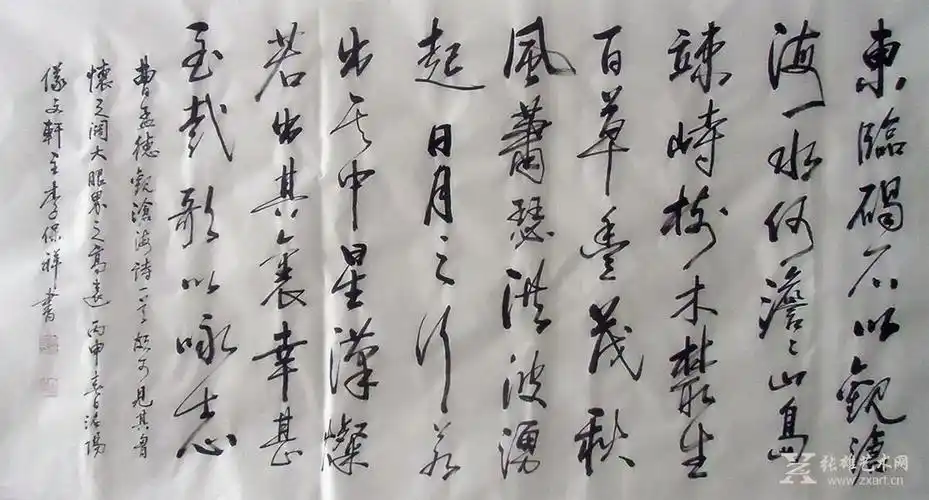 東臨碣石以觀滄
海一水何澹〻山島
竦峙樹木叢生
百草豐茂秋
風蕭瑟洪波湧
起日月之行若
出其中星漢燦
若出其裏幸甚
至哉歌以咏志
曹孟德觀滄海诗一首可見其胷
懷之阔大眼界之高遠丙申春日洛陽
儀文軒主李保祥書
张雄艺术网
www.zxart.cn